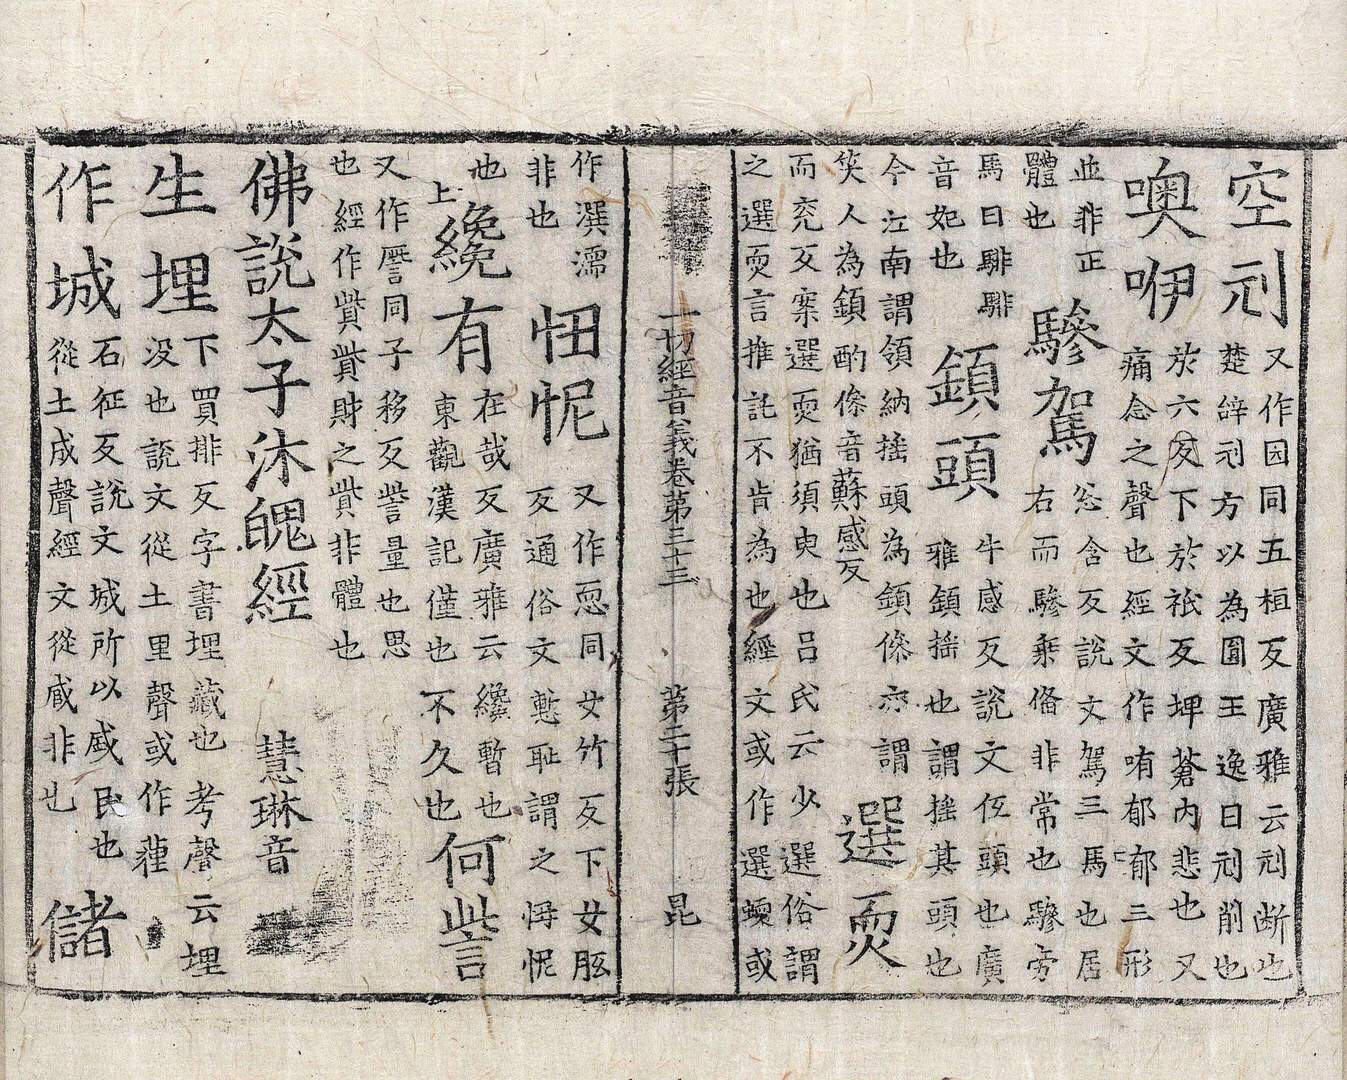 空刓
又作园同五桓反廣雅云刓断也
楚辝刓方以為圜王逸曰刓削也
噢咿
於六反下於祇反埤蒼内悲也又
痛念之聲也經文作哊郁郁三形
並非正
體也
驂駕
忩含反說文駕三馬也居
右而驂乘俻非常也驂旁
馬曰騑騑
音妃也
顉頭
牛感反說文伍頭也廣
雅顉揺也謂揺其頭也
今江南謂領納揺頭為顉傪亦謂
笑人為顉酌傪音蘇感反
選耎
而兖反案選耎猶須臾也吕氏云少選俗謂
之選耎言推託不肯為也經文或作選蝡或
一切經音義卷第三十三 第二十張 昆
作濡
非也
忸怩
又作恧同女竹反下女胝
反通俗文慙耻謂之忸怩
也
上
纔有
在哉反廣雅云纔暫也
東觀漢記僅也不久也
何訾
又作同子移反訾量也思
也經作貲貲財之貲非體也
佛說太子沐魄經 慧琳音
生埋
下買排反字書埋藏也考聲云埋
没也說文從土里聲或作薶
作城
石征反說文城所以盛民也
從土成聲經文從非也
儲